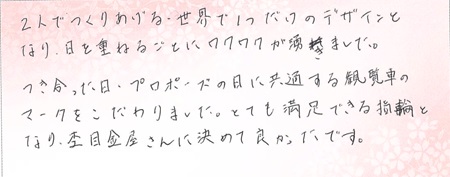 2人でつくりあげる、世界で1つだけのデザインと
なり、日を重ねるごとにワクワクが湧きました。
つき合った日・プロポーズの日に共通する観覧車の
マークをこだわりました。とても満足できる指輪と
なり、杢目金屋さんに決めて良かったです。